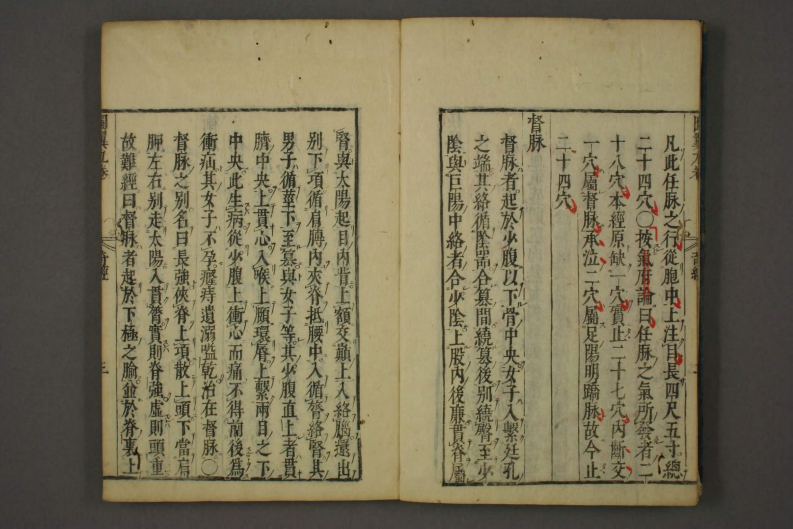 凡此任脉之行從胞中上注目長四尺五寸總
二十四穴○按氣府論曰任脉之氣所發者二
十八穴本經原缺一穴實止二十七穴內斷交
一穴屬督脉承泣二穴屬足陽明蹻脉故今止
二十四穴
督脉
督脉者起於少腹以下骨中央女子入繫廷孔
之端其絡循陰器合篡間繞篡後別繞臀至少
陰與巨陽中絡者合少陰上股內後廉貫脊屬
腎與太陽起目內眥上額交巓上入絡腦還出
別下項循肩髆內夾脊抵腰中入循膂絡腎其
男子循莖下至篡與女子等其少腹直上者貫
臍中央上貫心入喉上頤環唇上繫兩目之下
中央此生病從少腹上衝心而痛不得前後為
衝疝其女子不孕癃痔遺溺嗌乾治在督脉○
督脉之別名曰長強俠脊上項散上頭下當肩
胛左右別走太陽入貫膂實則脊強虛則頭重
故難經曰督脉者起於下極之腧並於脊裏上
奇經
三